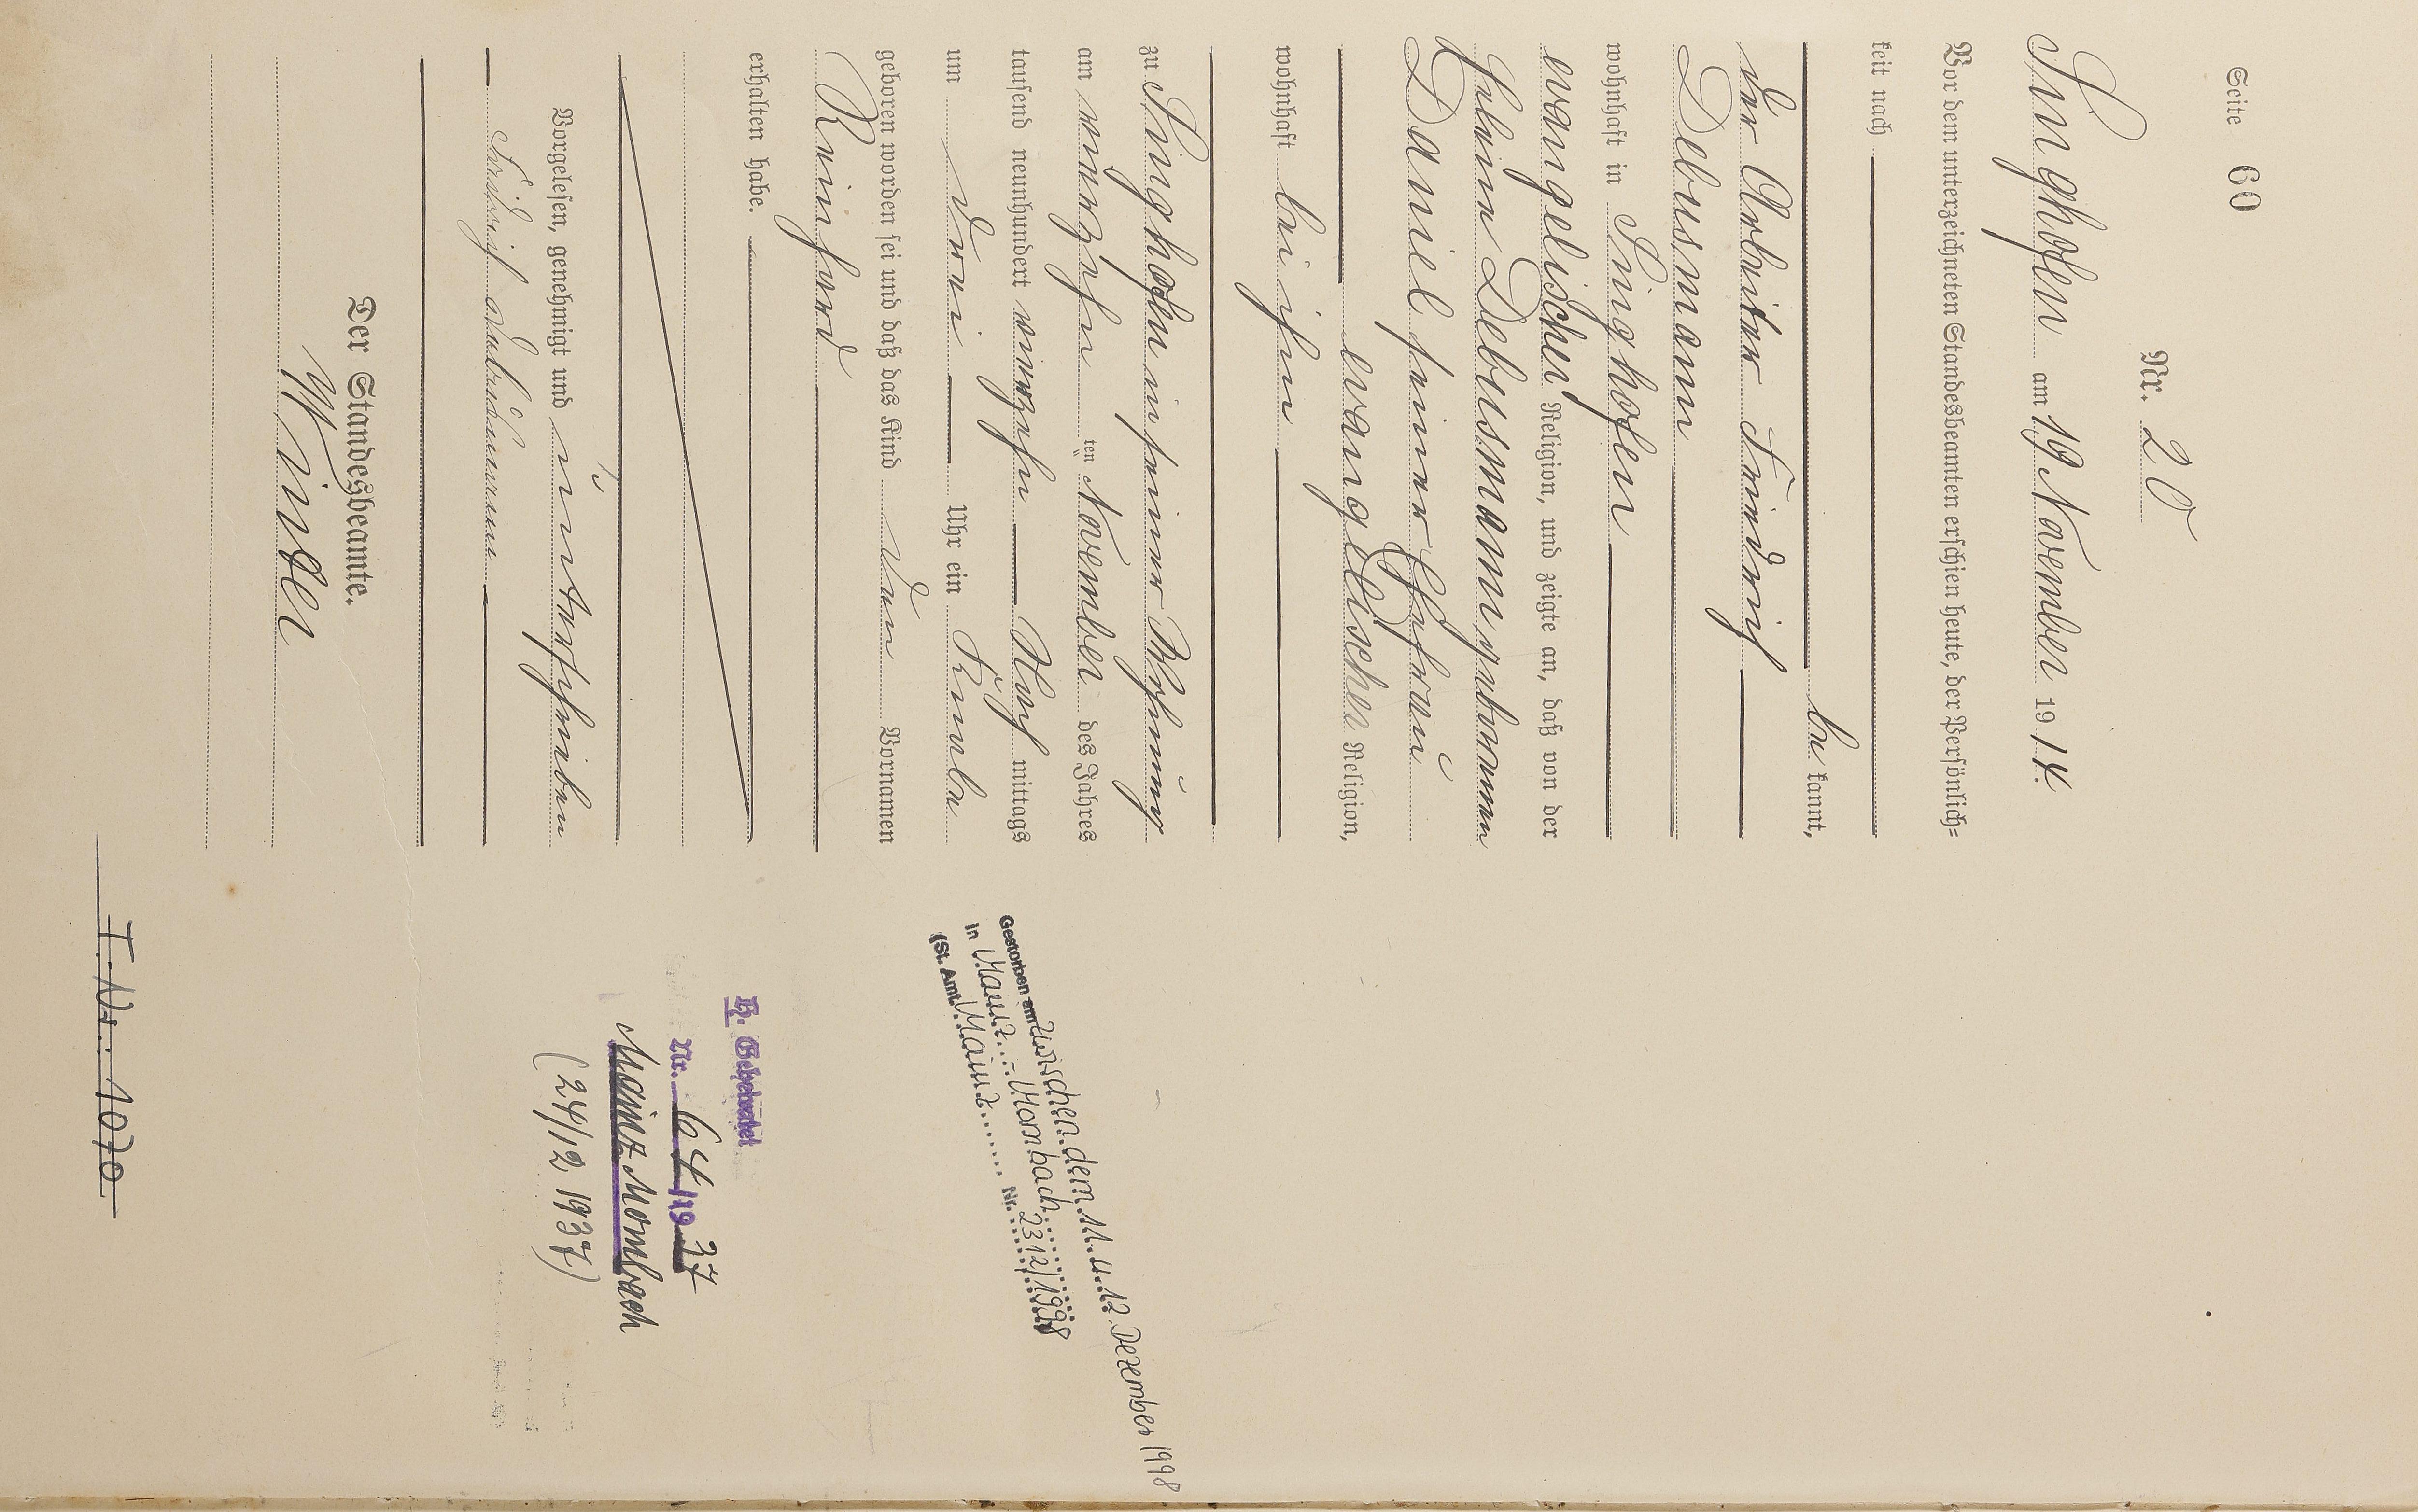 Seite 60
Nr. 20
Singhofen am 19 November 1914.
Vor dem unterzeichneten Standesbeamten erschien heute, der Persönlich-
keit nach
be kannt,
der Arbeiter Friedrich
Debusmann
wohnhaft in Singhofen
evangelischer Religion, und zeigte an, daß von der
Debusmann geborenen
Daniel seiner Ehefrau
evangelischer Religion,
wohnhaft bei ihm
zu Singhofen in seiner Wohnung
am vierzehn ten November des Jahres
tausend neunhundert vierzehn Nach mittags
um drei Uhr ein Knabe
geboren worden sei und daß das Kind den Vornamen
Reinhard
erhalten habe.
Vorgelesen, genehmigt und unterschrieben
Friedrich Debusmann
Der Standesbeamte.
Minder
Gestorben am zwischen dem 11. u 12. Dezember 1998
in Mainz - Mombach
(St. Amt Mainz Nr. 2312/1998
H. Geheiratet
Nr. 64/1937
Mainz-Mombach
(24/12 1937)
T. Nr. 1070